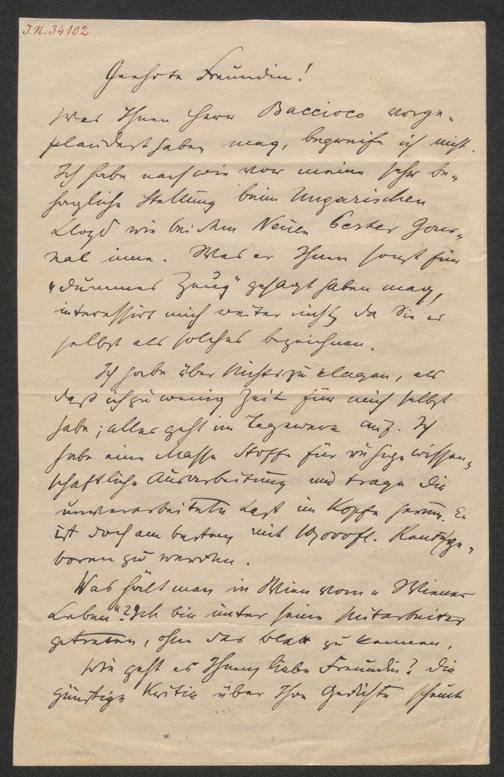 J.N. 34102
Geehrte Freundin!
Was Ihnen Herr Baccioco vorge-
plaudert haben mag, begreife ich nicht.
Ich habe nach wie vor meine sehr be-
hagliche Stellung beim Ungarischen
Lloyd wie bei dem Neuen Pester Jour-
nal inne. Was er Ihnen sonst für
"dummes Zeug" gesagt haben mag,
interessirt mich weiter nicht, da Sie es
selbst als solches bezeichnen.
Ich habe über Nichts zu klagen, als
daß ich zu wenig Zeit für mich selbst
habe; alles geht im Tagewerk auf. Ich
habe eine Masse Stoffe für ruhige wissen-
schaftliche Ausarbeitung und trage die
unverarbeitete Last im Kopfe herum. Es
ist doch am besten mit 10,000 fl. Rente ge-
boren zu werden.
Was hält man in Wien vom "Wiener
Leben"? Ich bin unter seine Mitarbeiter
getreten, ohne das Blatt zu kennen.
Wie geht es Ihnen, liebe Freundin? Die
günstige Kritik über Ihre Gedichte scheint